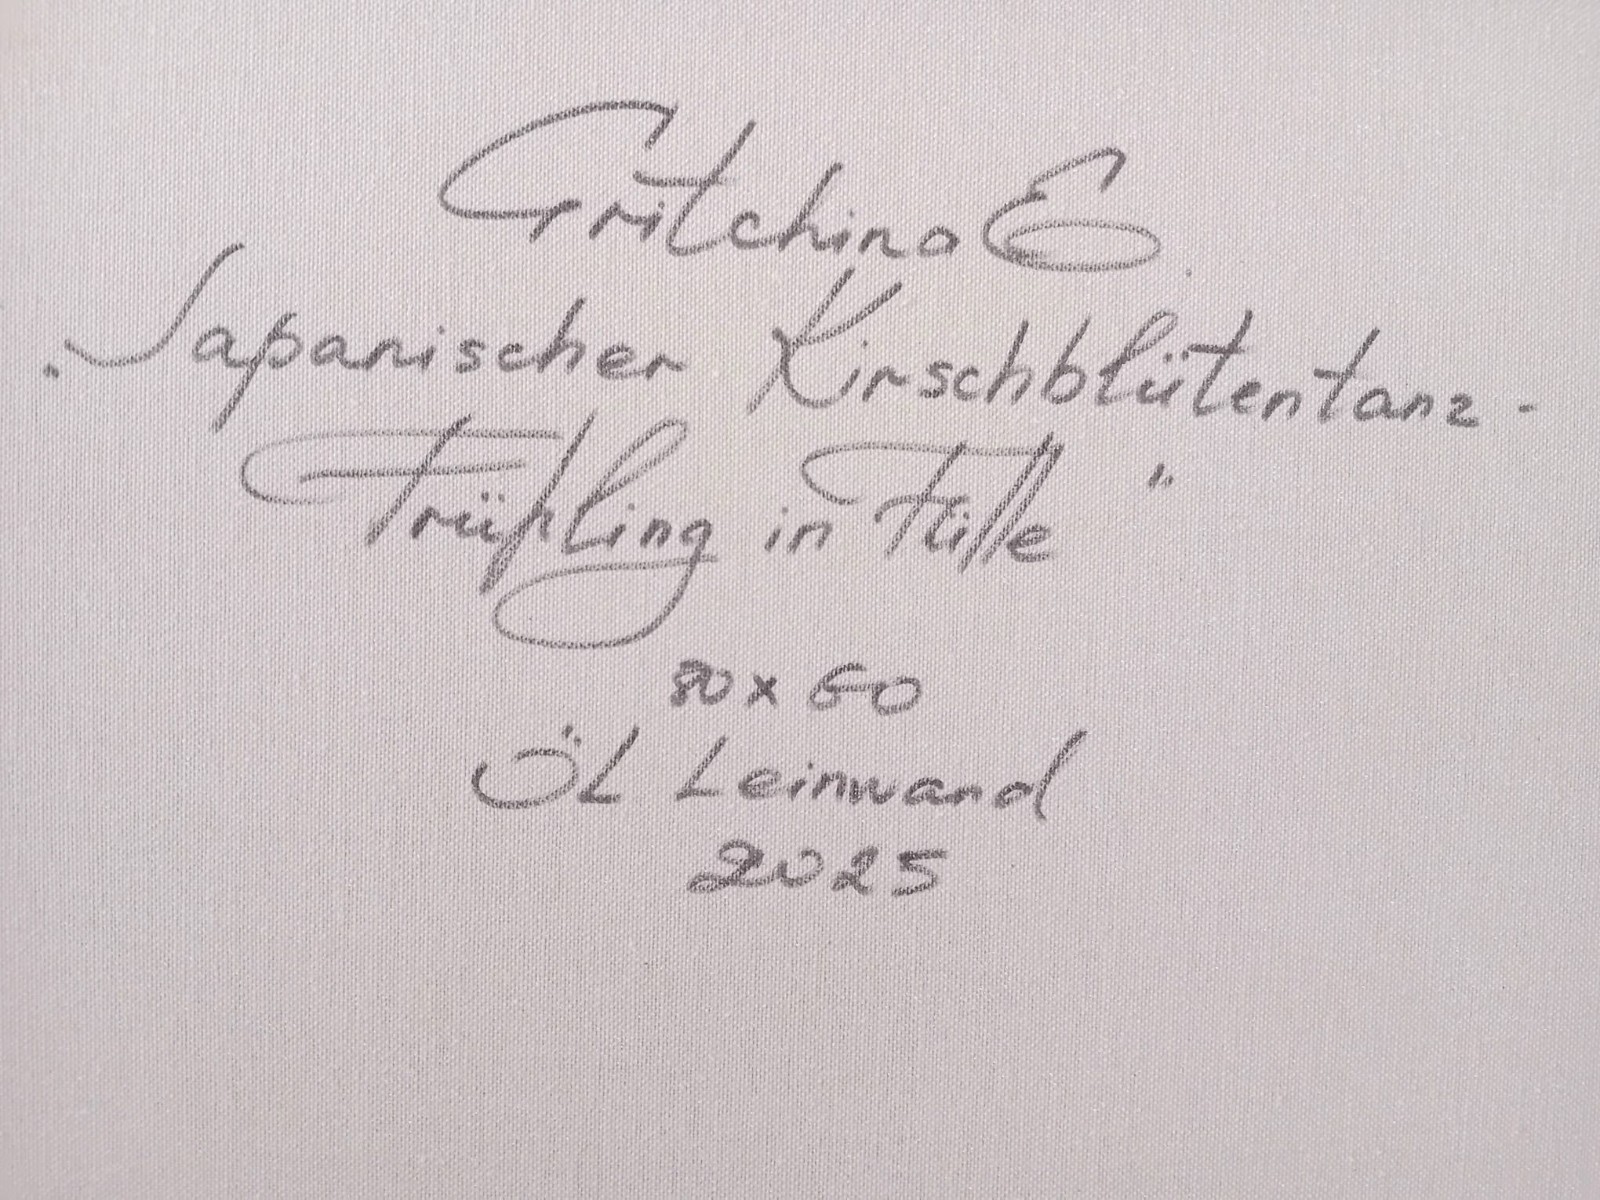 Gritchina E.
„Japanischer Kirschblütentanz -
Frühling in Fülle“
80 x 60
Öl Leinwand
2025